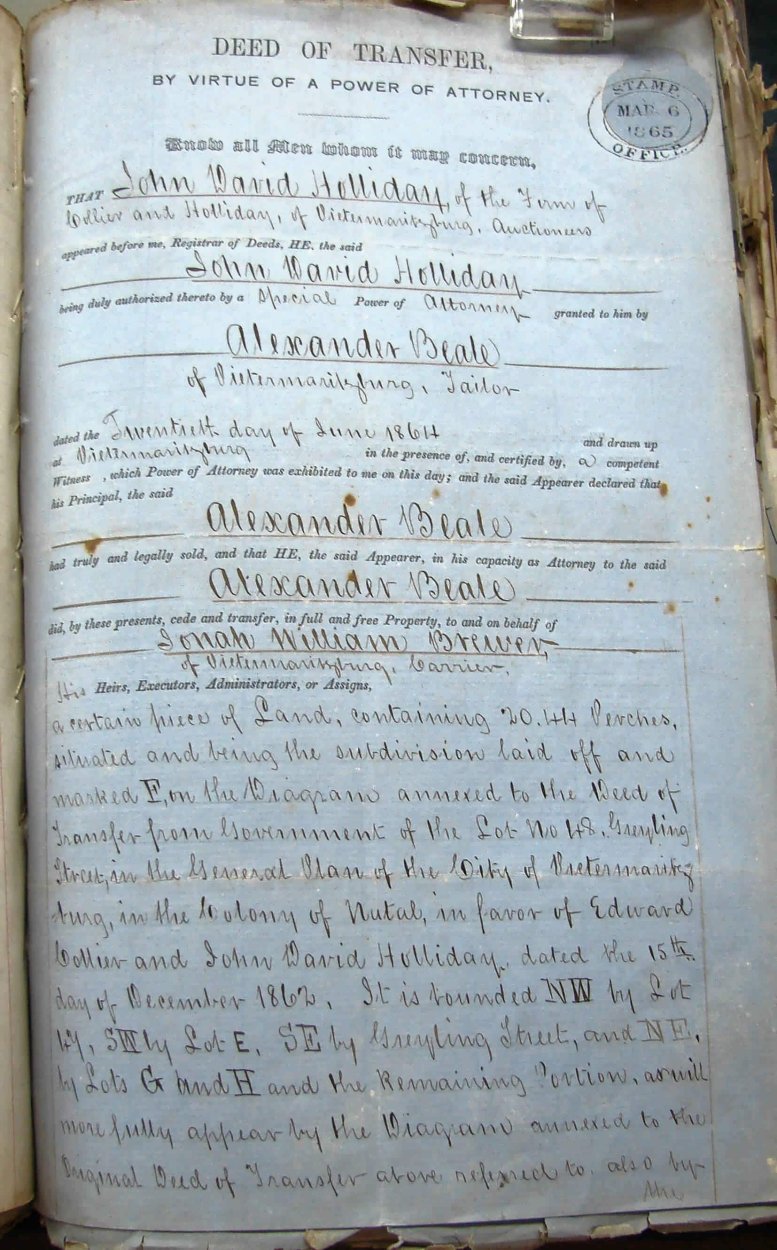 DEED OF TRANSFER,
BY VIRTUE OF A POWER OF ATTORNEY.
STAMP
MAR 6
1865
OFFICE.
Know all Men whom it may concern,
THAT John David Holliday, of the Firm of
Collier and Holliday, of Pietermaritzburg, Auctioneers
appeared before me, Registrar of Deeds, HE, the said
John David Holliday
being duly authorized thereto by a Special Power of Attorney granted to him by
Alexander Beale
of Pietermaritzburg, Tailor
dated the Twentieth day of June 1864 and drawn up
at Pietermaritzburg in the presence of, and certified by, a competent
Witness , which Power of Attorney was exhibited to me on this day; and the said Appearer declared that
his Principal, the said
Alexander Beale
had truly and legally sold, and that HE, the said Appearer, in his capacity as Attorney to the said
Alexander Beale
did, by these presents, cede and transfer, in full and free Property, to and on behalf of
Jonah William Brewer,
of Pietermaritzburg, Carrier,
His Heirs, Executors, Administrators, or Assigns,
a certain piece of Land, containing 20.44 Perches,
situated and being the subdivision laid off and
marked F, on the Diagram annexed to the Deed of
Transfer from Government of the Lot No 48, Greyling
Street, in the General Plan of the City of Pietermaritz
burg, in the Colony of Natal, in favor of Edward
Collier and John David Holliday, dated the 15th
day of December 1862. It is bounded NW by Lot
47, SW by Lot E, SE by Greyling Street, and NE,
by Lots G and H and the Remaining Portion, as will
more fully appear by the Diagram annexed to the
Original Deed of Transfer above referred to, also by
the